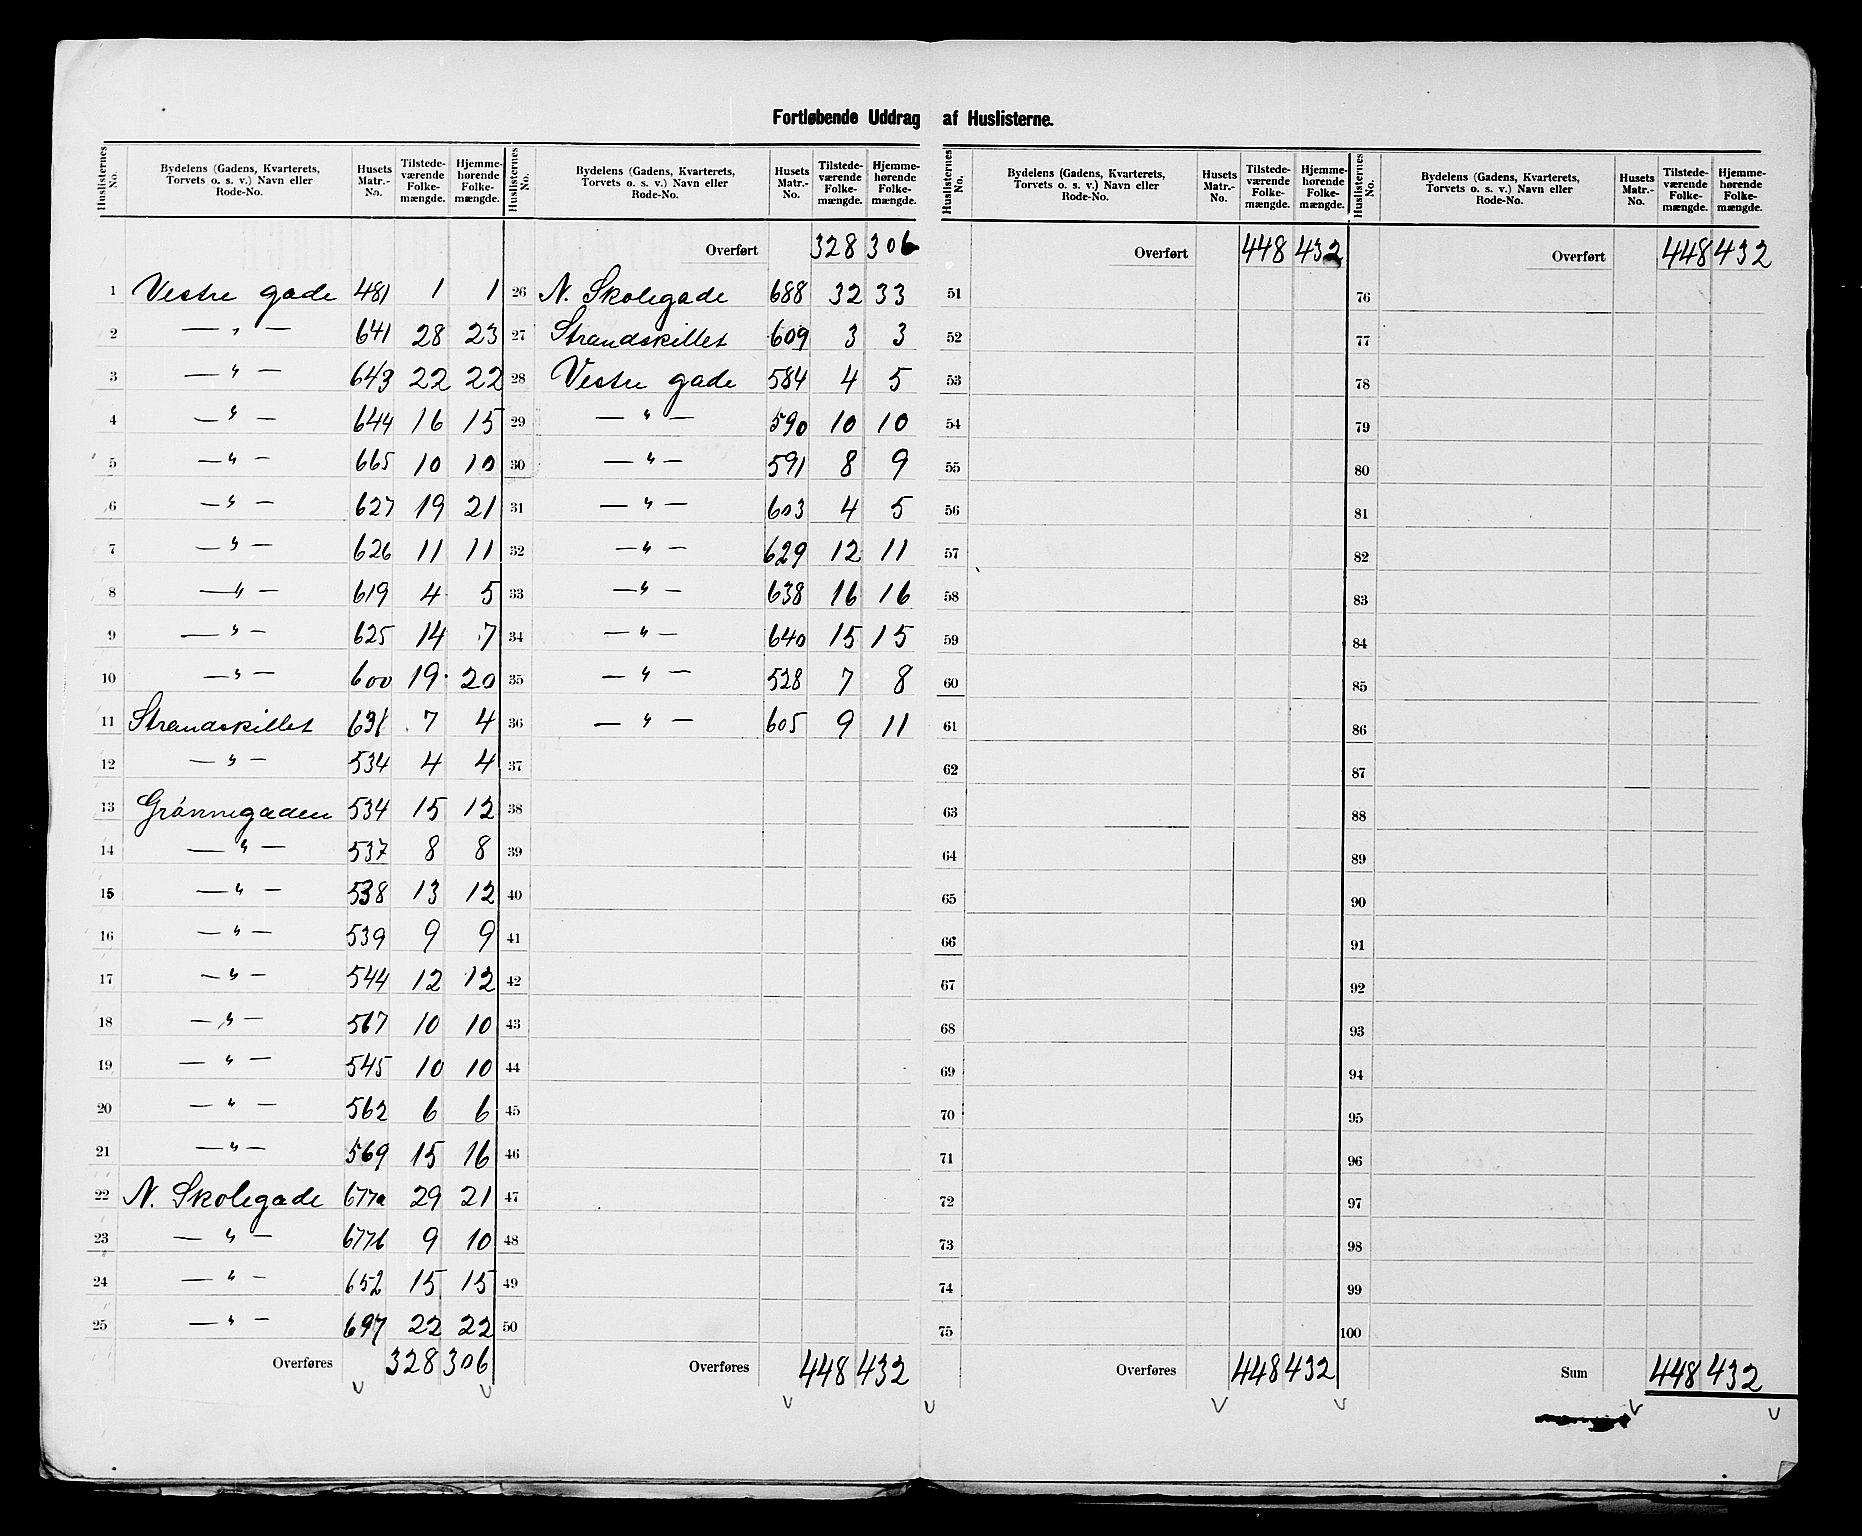 Fortløbende Uddrag af Huslisterne.
Huslisternes No. | Bydelens (Gadens, Kvarterets, Torvets o. s. v.) Navn eller Rode-No. | Husets Matr.-No. | Tilstede-værende Folke-mængde. | Hjemme-hørende Folke-mængde.
1 Vestre gade 481 1 1
2 — " — 641 28 23
3 — " — 643 22 22
4 — " — 644 16 15
5 — " — 665 10 10
6 — " — 627 19 21
7 — " — 626 11 11
8 — " — 619 4 5
9 — " — 625 14 7
10 — " — 600 19 20
11 Strandskillet 631 7 4
12 — " — 534 4 4
13 Grönnegaden 534 15 12
14 — " — 537 8 8
15 — " — 538 13 12
16 — " — 539 9 9
17 — " — 544 12 12
18 — " — 567 10 10
19 — " — 545 10 10
20 — " — 562 6 6
21 — " — 569 15 16
22 N. Skolegade 677a 29 21
23 — " — 677b 9 10
24 — " — 652 15 15
25 — " — 697 22 22
Overføres 328 306
Huslisternes No. | Bydelens (Gadens, Kvarterets, Torvets o. s. v.) Navn eller Rode-No. | Husets Matr.-No. | Tilstede-værende Folke-mængde. | Hjemme-hørende Folke-mængde.
Overført 328 306
26 N. Skolegade 688 32 33
27 Strandskillet 609 3 3
28 Vestre gade 584 4 5
29 — " — 590 10 10
30 — " — 591 8 9
31 — " — 603 4 5
32 — " — 629 12 11
33 — " — 638 16 16
34 — " — 640 15 15
35 — " — 528 7 8
36 — " — 605 9 11
37
38
39
40
41
42
43
44
45
46
47
48
49
50
Overføres 448 432
Huslisternes No. | Bydelens (Gadens, Kvarterets, Torvets o. s. v.) Navn eller Rode-No. | Husets Matr.-No. | Tilstede-værende Folke-mængde. | Hjemme-hørende Folke-mængde.
Overført 448 432
51
52
53
54
55
56
57
58
59
60
61
62
63
64
65
66
67
68
69
70
71
72
73
74
75
Overføres 448 432
Huslisternes No. | Bydelens (Gadens, Kvarterets, Torvets o. s. v.) Navn eller Rode-No. | Husets Matr.-No. | Tilstede-værende Folke-mængde. | Hjemme-hørende Folke-mængde.
Overført 448 432
76
77
78
79
80
81
82
83
84
85
86
87
88
89
90
91
92
93
94
95
96
97
98
99
100
Sum 448 432